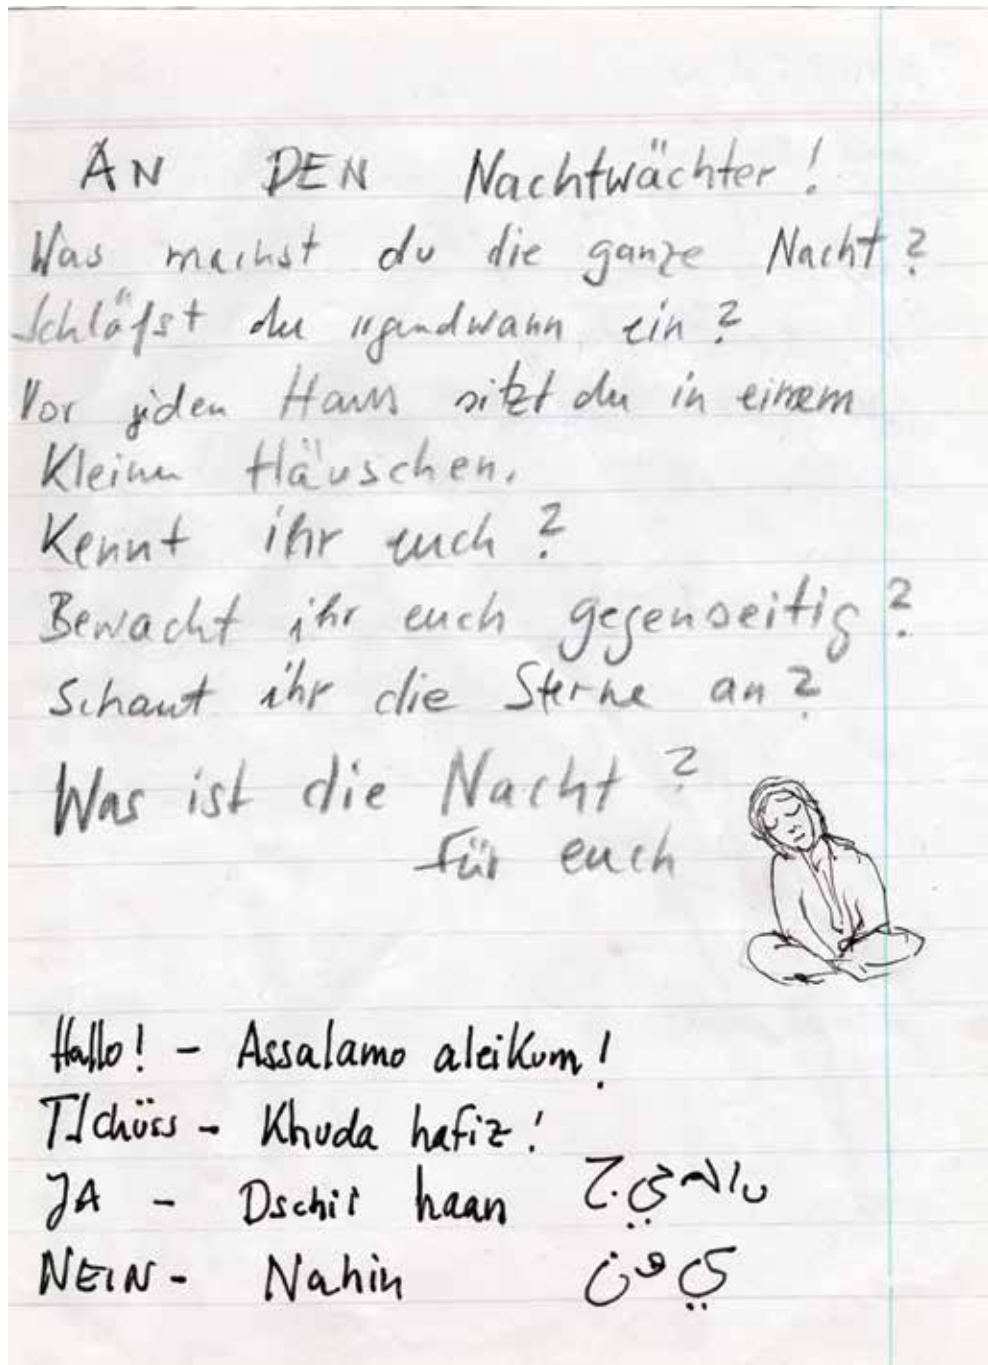 AN DEN Nachtwächter!
Was machst du die ganze Nacht?
Schläfst du irgendwann ein?
Vor jeden Haus sitzt du in einem
Kleinen Häuschen.
Kennt ihr euch?
Bewacht ihr euch gegenseitig?
Schaut ihr die Sterne an?
Was ist die Nacht?
für euch
Hallo! - Assalamo aleikum!
Tschüss - Khuda hafiz!
JA - Dschii haan
NEIN - Nahin